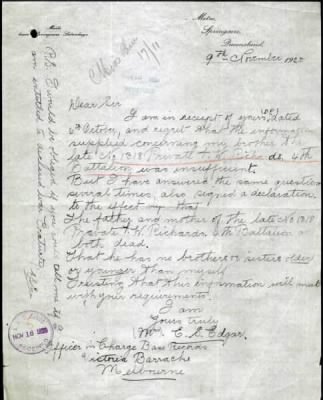 Meteor,
Springsure,
Queensland.
9th November 1920
Dear Sir
I am in receipt of yours, dated
6th October, and regret that the information
supplied concerning my brother the
late No 1318 Private T. H. Richards, 4th
Battalion was insufficient.
But I have answered the same question
several times, also signed a declaration
to the effect
The father and mother of the late No 1318
Private T. H. Richards 4th Battalion are
both dead.
That he has no brothers or sisters older
or younger than myself
Trusting that this information will meet
with your requirements.
I am
Yours truly
Mrs E. E. Edgar.
Officer in Charge Base Records
Victoria Barracks
Melbourne
P.S. I would be obliged if you will
am entitled to deceased
NOV 18 1920